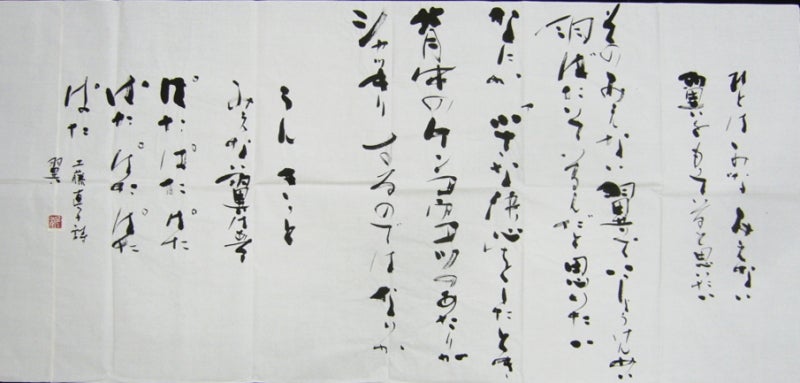 ひとはみな みえない
翼をもっていると思いたい
そのみえない翼でいっしょうけんめい
羽ばたいているんだと思いたい
なにか 小さな決心をしたとき
背中のケンコウコツのあたりが
シャッキリするのではないか
うん きっと
みえない翼は
ぱたぱたぱた
ぱたぱたぱた
ぱた
工藤直子 詩
翼